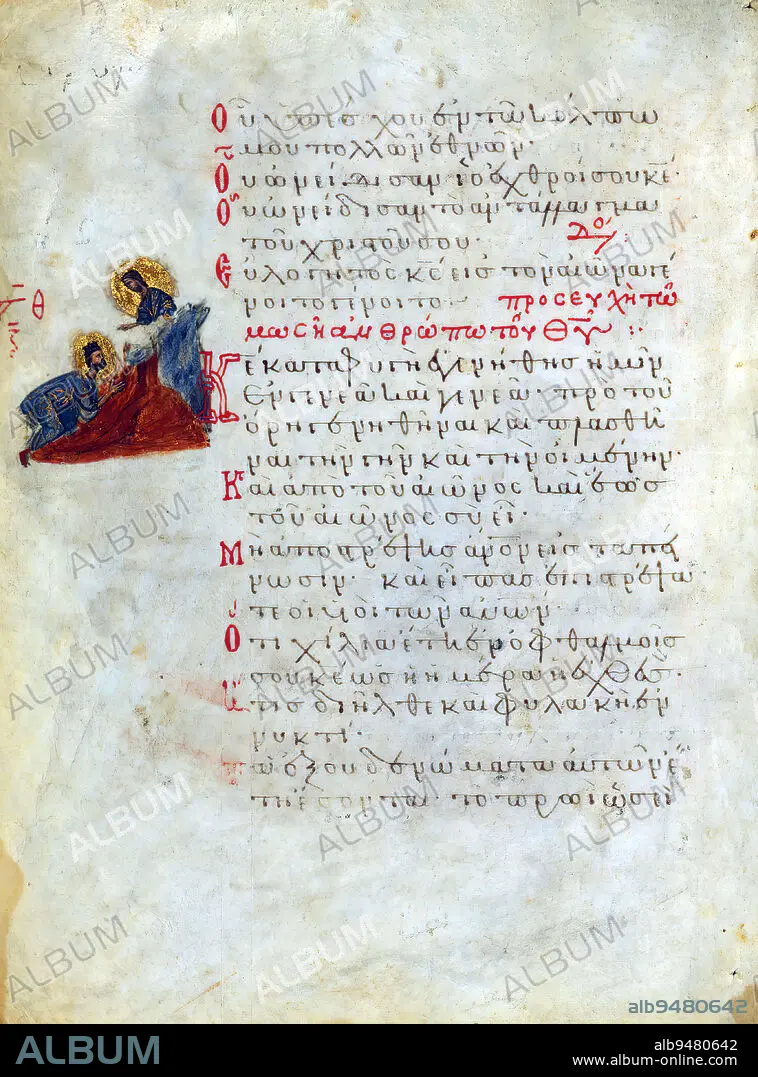 Οὗ ὑπέσχον ἐν τῶ κόλπω
μου πολλῶν ἐθνῶν·
Οὗ ὠνείδισαν οἱ ἐχθροί σου κε·
Οὗ ὠνείδισαν τὸ ἀντάλλαγμα
τοῦ χριστοῦ σου·
Εὐλογητὸς κς εἰς τὸν αἰῶνα γέ
νοιτο γένοιτο· προσευχὴ τῶ
μωσῆ ἀνθρώπω τοῦ θυ
Κε καταφυγὴ ἐγενήθης ἡμῖν
ἐν γενεᾶ καὶ γενεᾶ· πρὸ τοῦ
ὄρη γενηθῆναι καὶ πλασθῆ
ναι τὴν γῆν καὶ τὴν οἰκουμένην·
Καὶ ἀπὸ τοῦ αἰῶνος καὶ ἕως
τοῦ αἰῶνος σὺ εἶ·
Μὴ ἀποστρέψης ἀνον εἰς ταπεί
νωσιν· καὶ εἶπας ἐπιστρέψα
τε οἱ υἱοὶ τῶν ἀνων·
Ὅτι χίλια ἔτη ἐν ὀφθαλμοῖς
σου κε ὡς ἡ ἡμέρα ἡ ἐχθές·
ἥτις διῆλθε καὶ φυλακὴ ἐν
νυκτί·
Τὰ ἐξουδενώματα αὐτῶν ἔ
τη ἔσονται· τὸ πρωῒ ὡσεὶ
alb9480642
ALBUM
alb9480642
www.album-online.com